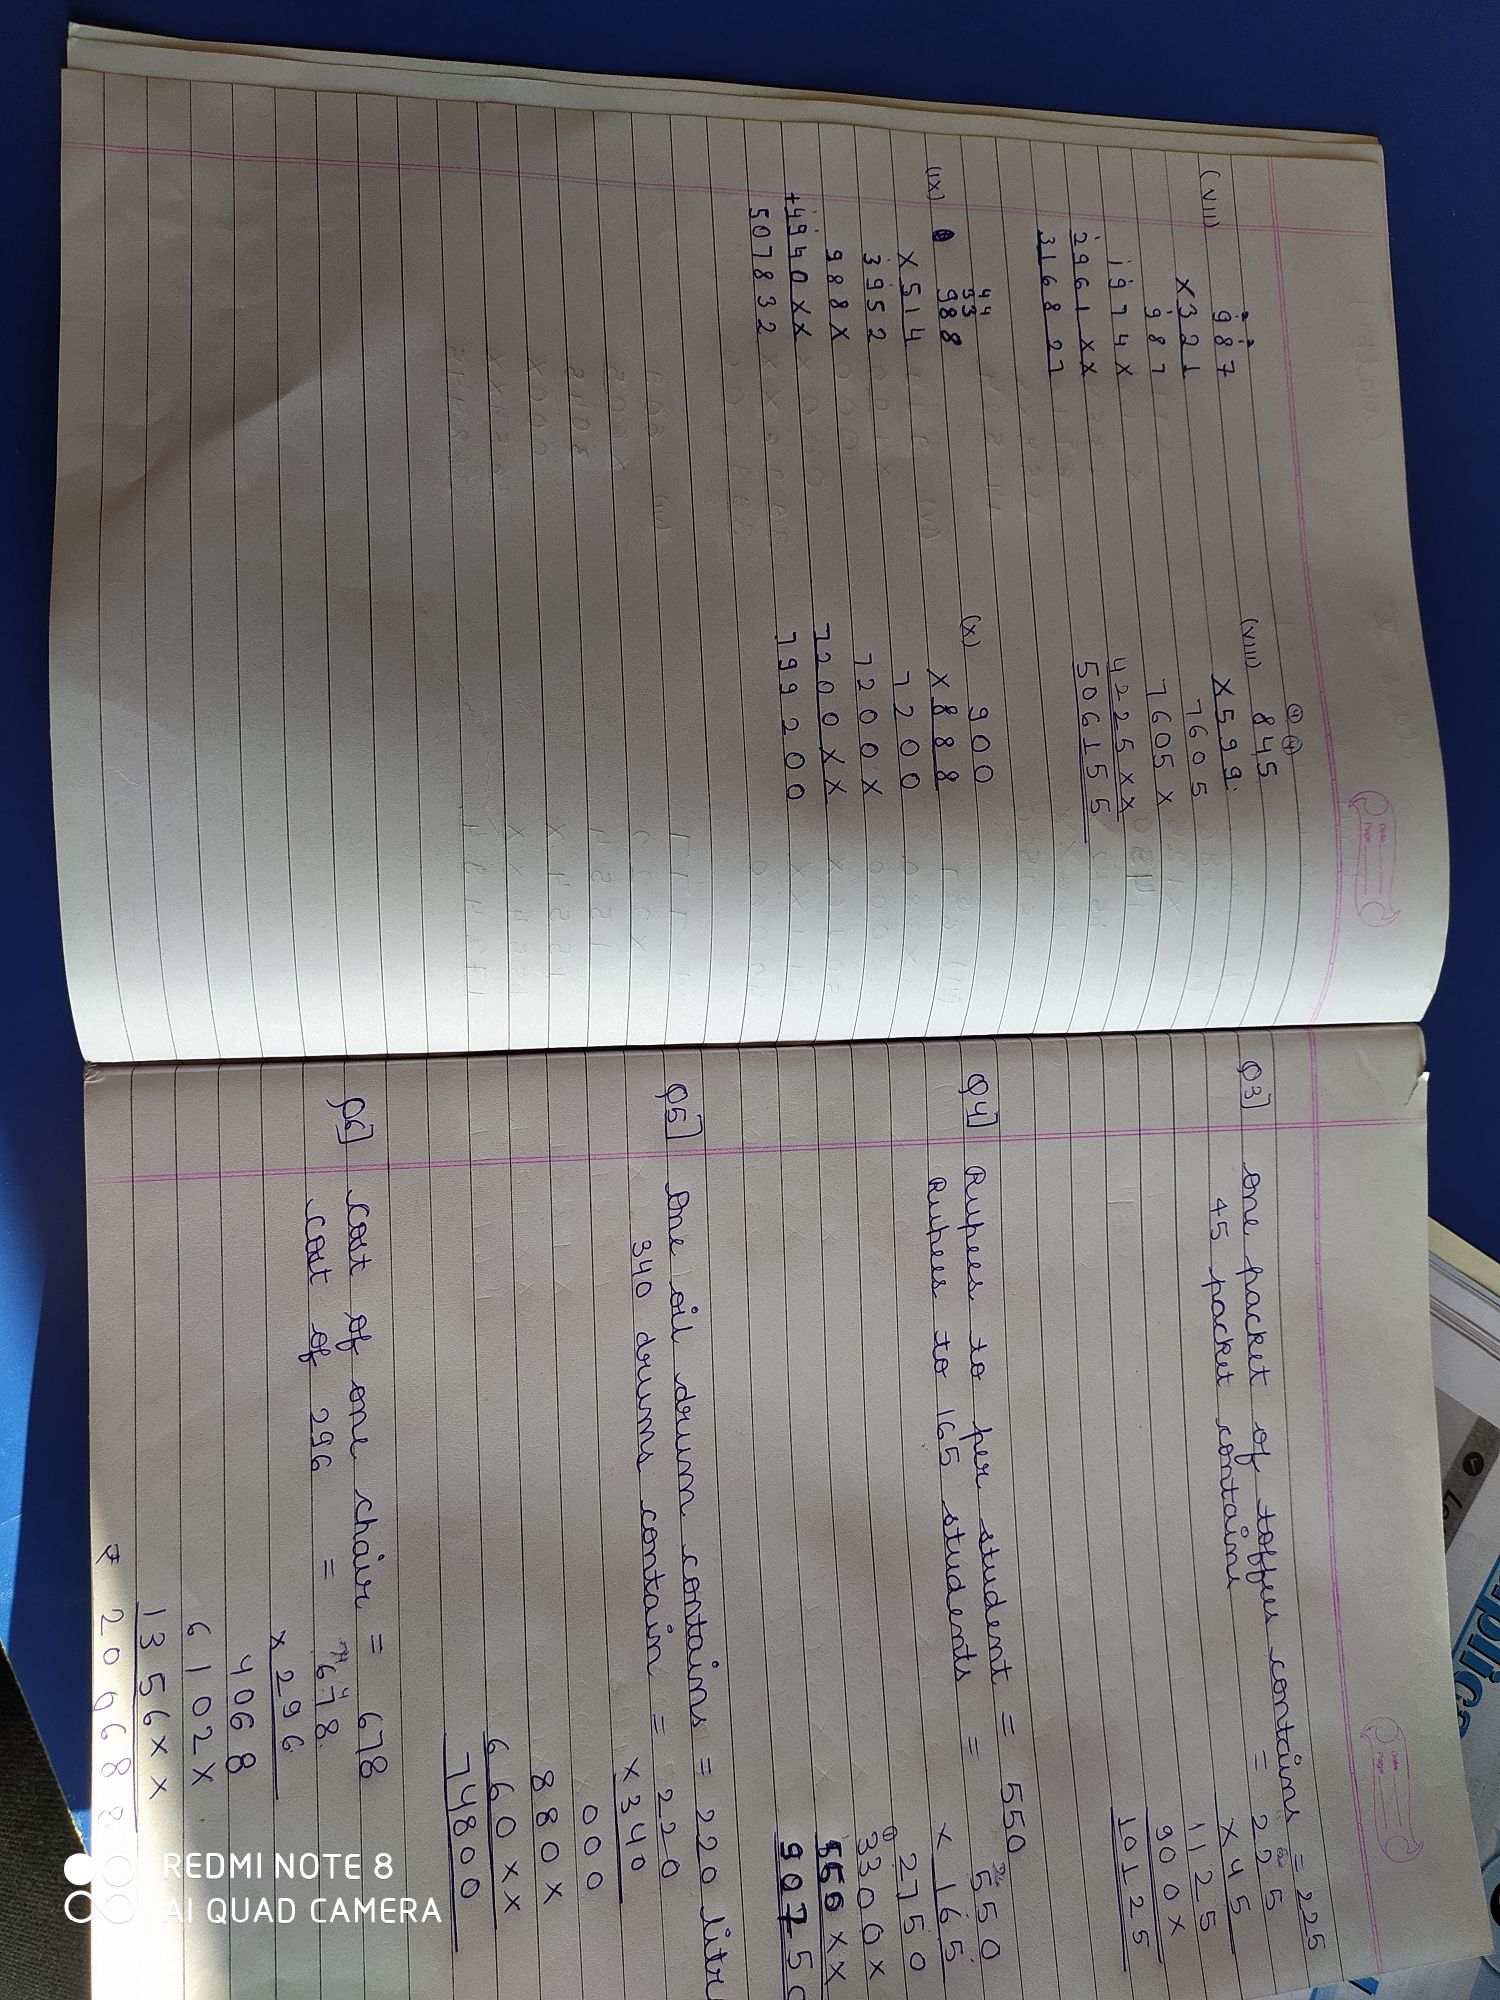 Date
Page
(VII) 987
X321
987
1974X
2961XX
316827
(VIII) 845
X599
7605
7605X
4225XX
506155
(IX) 988
X514
3952
988X
+4940XX
507832
(X) 900
X888
7200
7200X
7200XX
799200
Date
Page
Q3] One packet of toffees contains = 225
45 packet contains = 225
X45
1125
900X
10125
Q4] Rupees to per student = 550
Rupees to 165 students = 550
X165
2750
3300X
550XX
90750
Q5] One oil drum contains = 220 litr
340 drums contain = 220
X340
000
880X
660XX
74800
Q6] cost of one chair = 678
cost of 296 = 678
X296
4068
6102X
1356XX
₹ 200688
REDMI NOTE 8
AI QUAD CAMERA